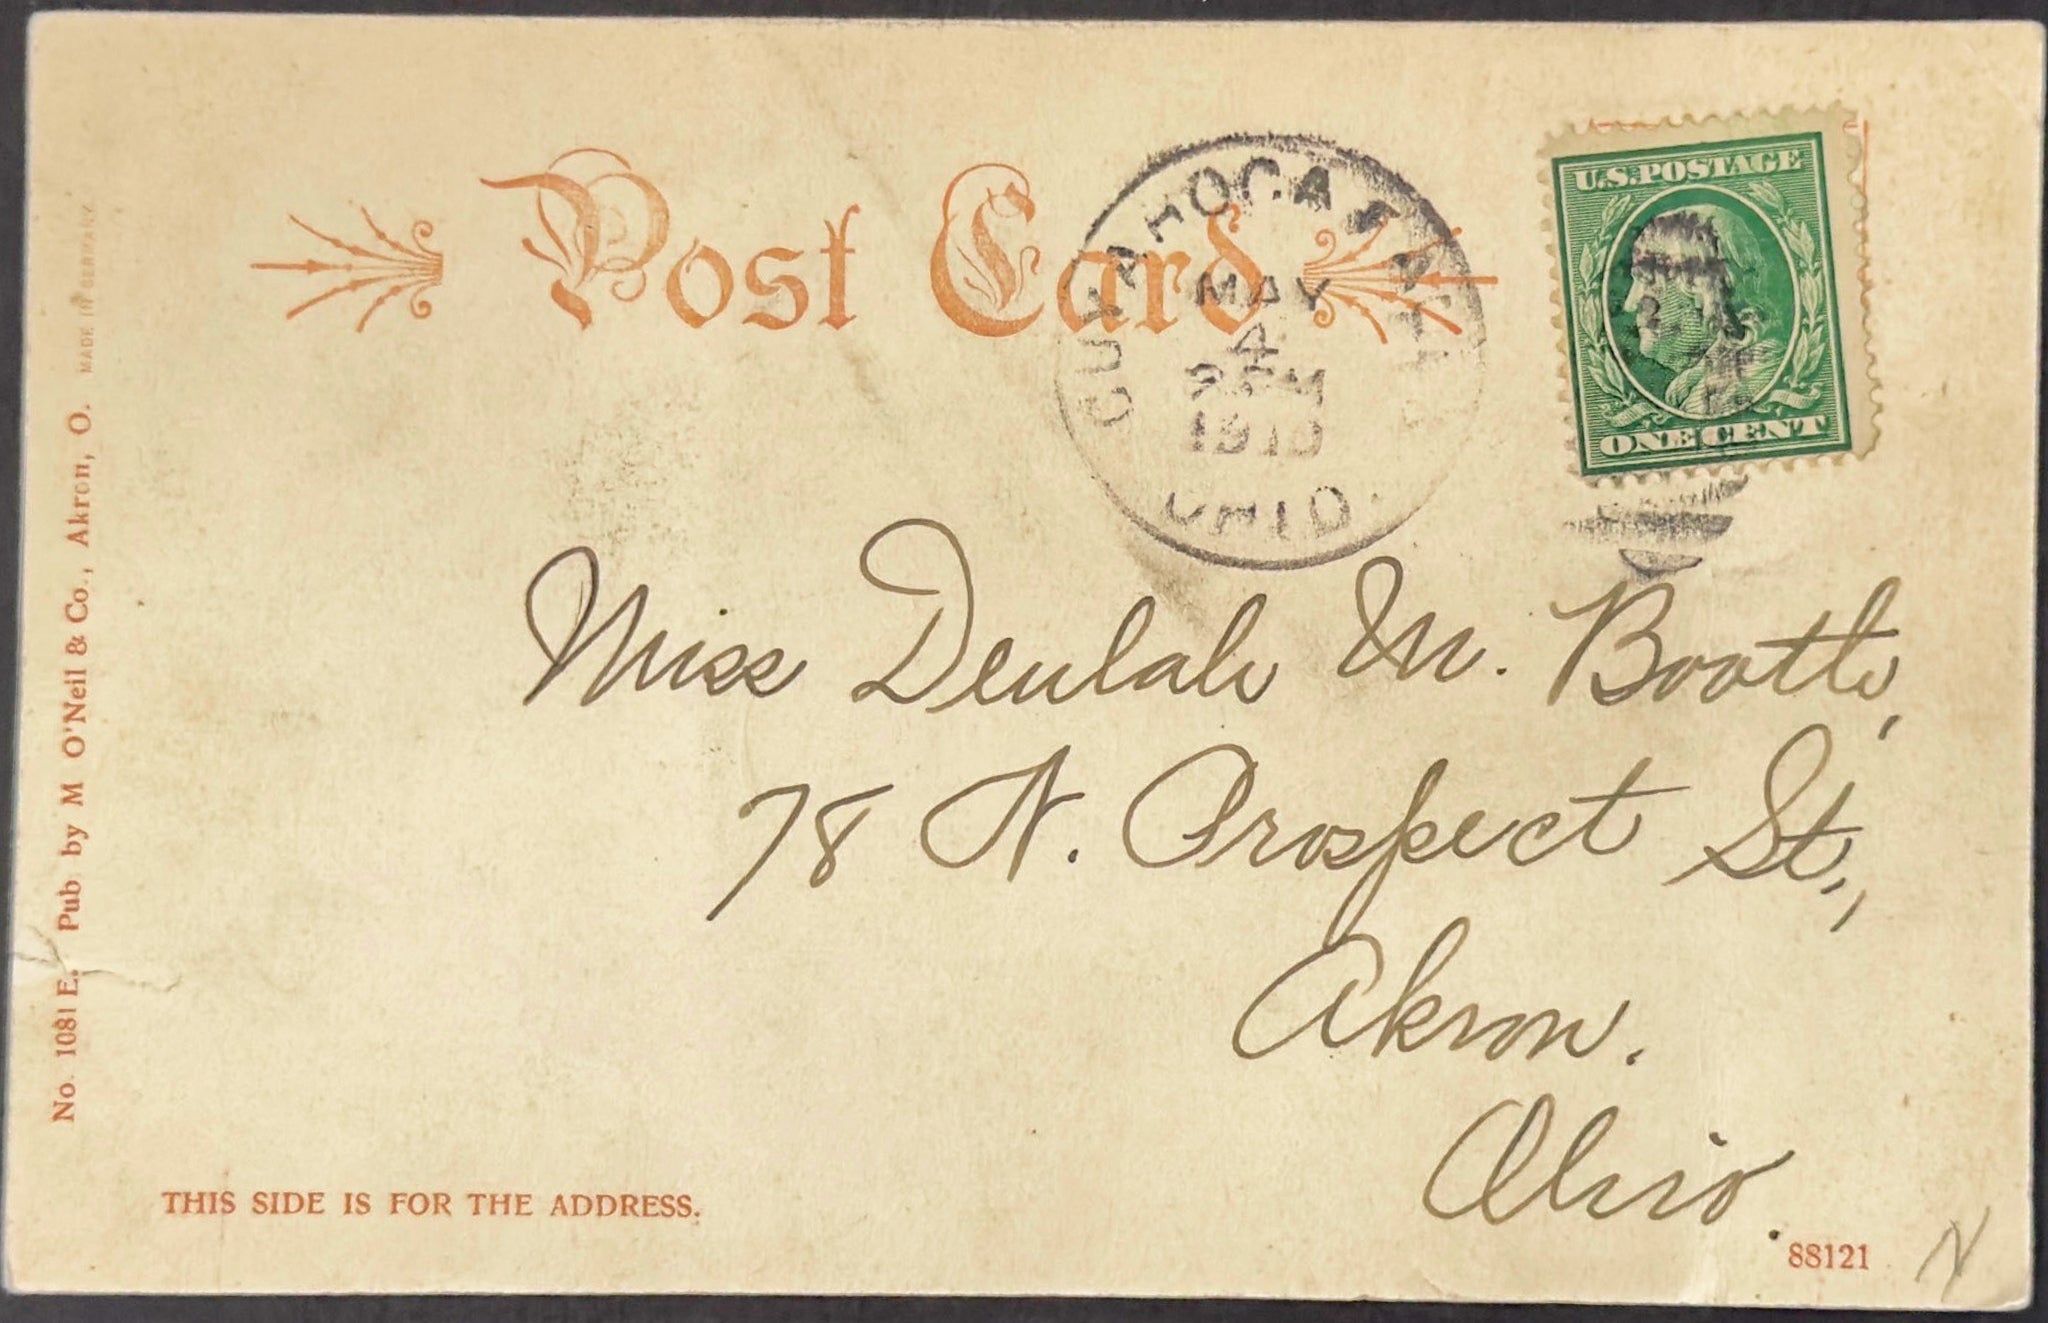 Post Card
CUYAHOGA FALLS
MAY
4
PM
1910
OHIO.
U.S. POSTAGE
ONE CENT
Miss Deulah M. Bootle,
78 N. Prospect St.,
Akron.
Ohio.
THIS SIDE IS FOR THE ADDRESS.
88121
No. 1081 E. Pub by M O'Neil & Co., Akron, O. MADE IN GERMANY